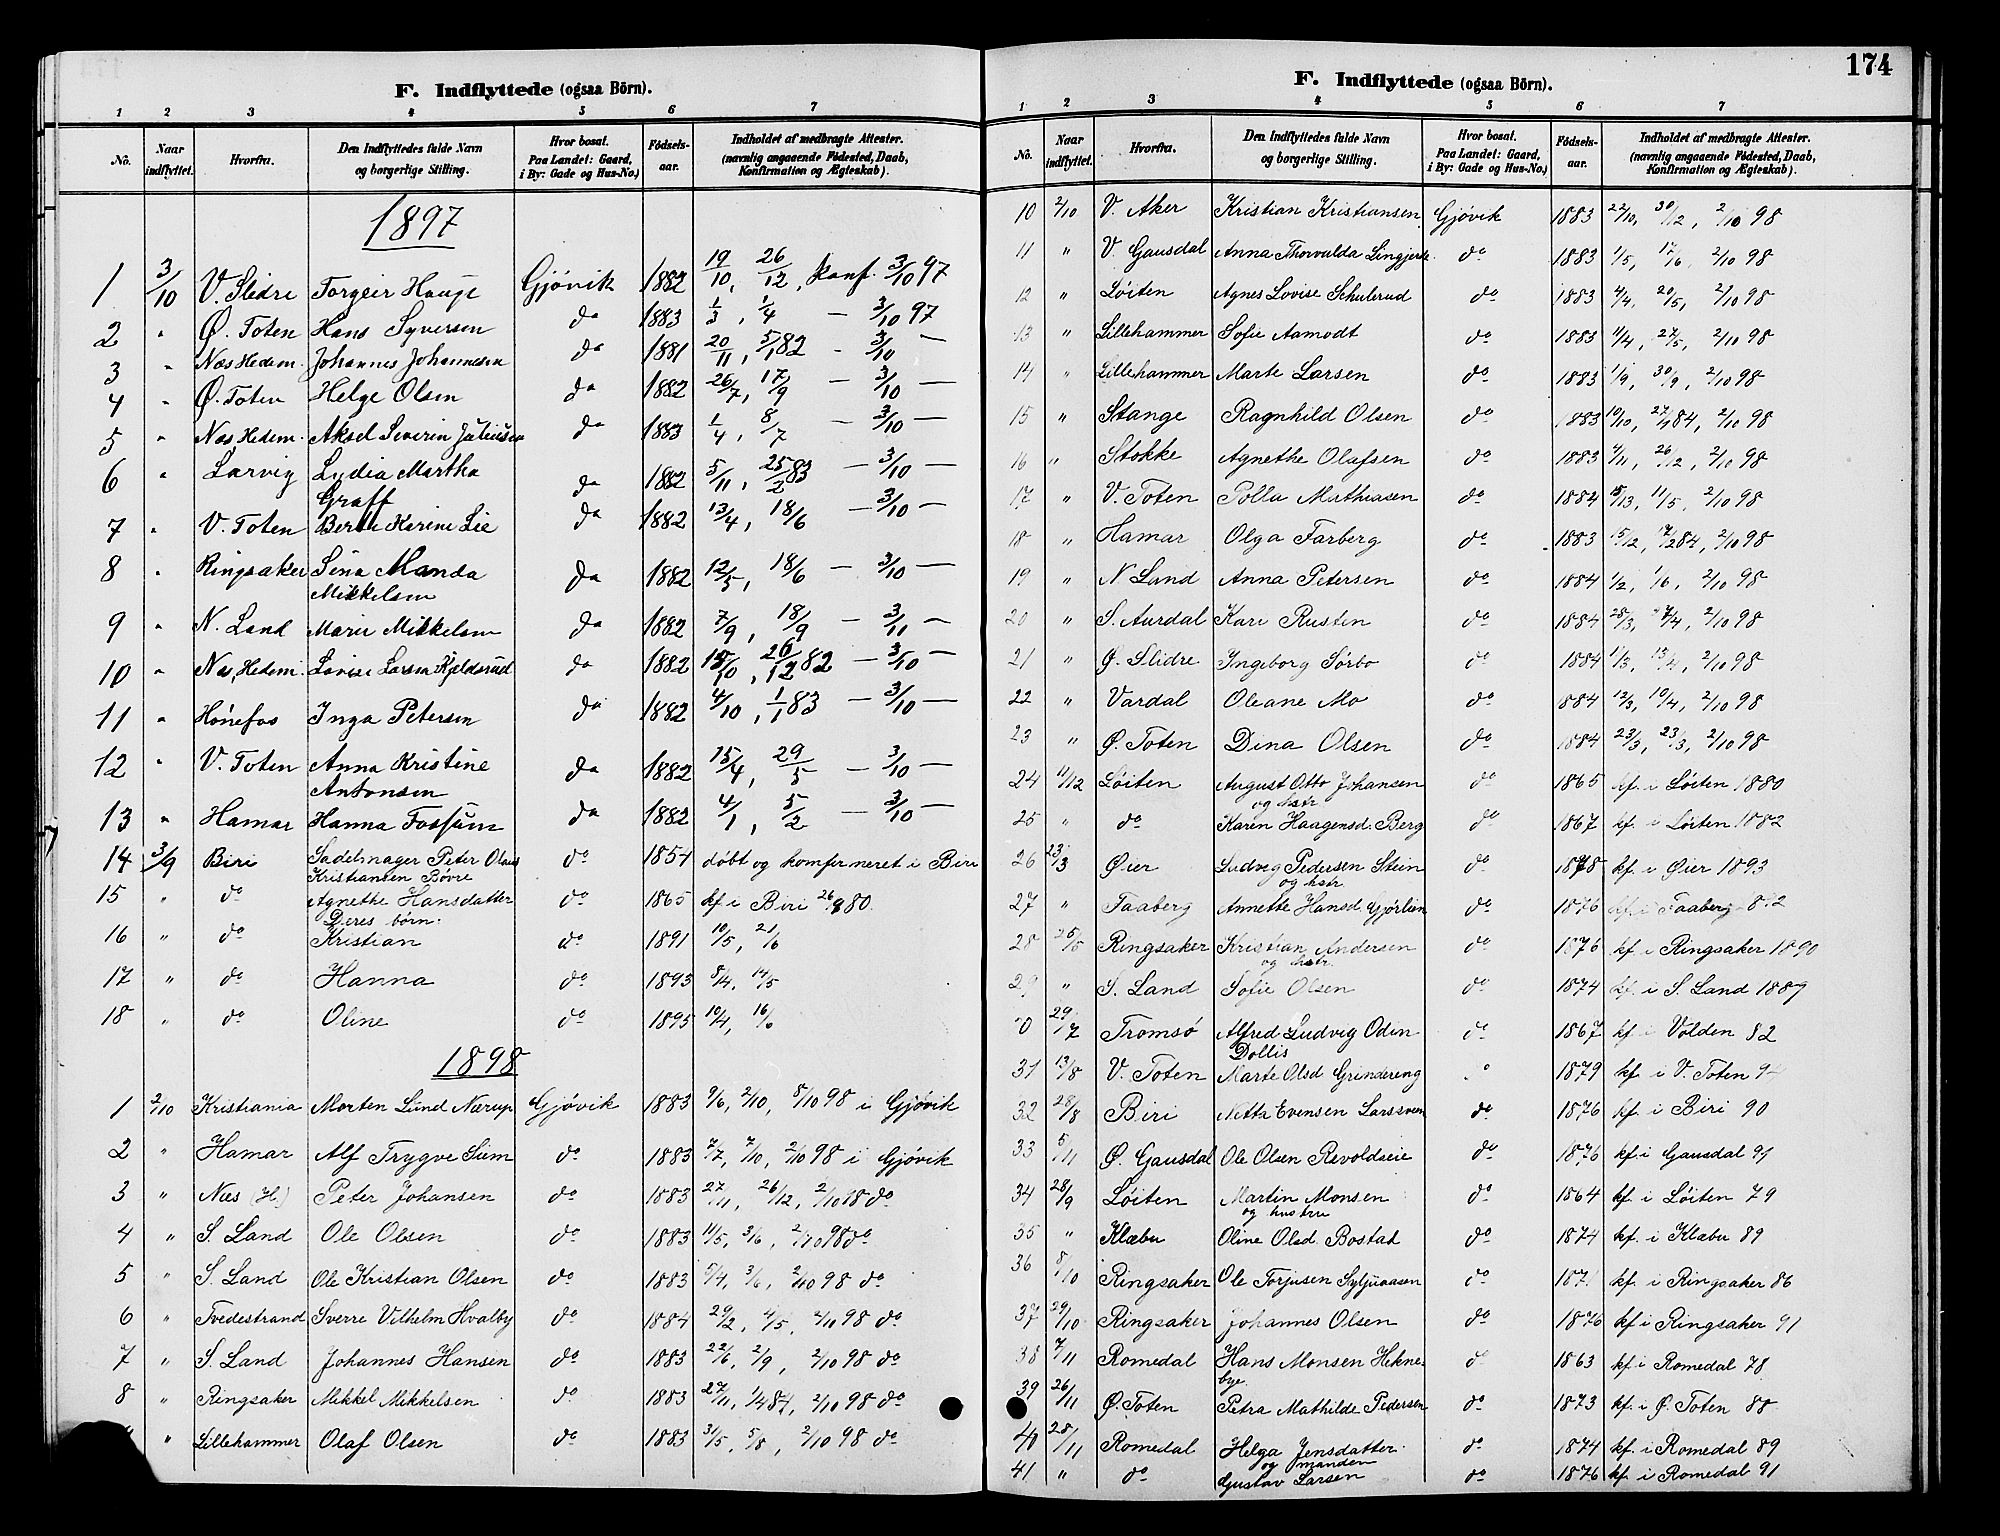 F. Indflyttede (ogsaa Börn).
1 2 3 4 5 6 7
No. Naar indflyttet. Hvorfra. Den Indflyttedes fulde Navn og borgerlige Stilling. Hvor bosat. Paa Landet: Gaard, i By: Gade og Hus-No.) Födsels-aar. Indholdet af medbragte Attester. (navnlig angaaende Födested, Daab, Konfirmation og Ægteskab).
1897
1 3/10 V. Slidre Torgeir Hauge Gjövik 1882 19/10, 26/12, konf. 3/10 97
2 " Ø. Toten Hans Syversen do 1883 1/3, 1/4 — 3/10 97
3 " Næs Hedem. Johannes Johannesen do 1881 20/11, 5/1 82 - 3/10 —
4 " Ø. Toten Helge Olsen do 1882 26/7, 17/9 — 3/10 —
5 " Næs Hedem. Aksel Severin Juliussen do 1883 1/4, 8/7 — 3/10 —
6 " Larvig Lydia Martha
Graff do 1882 5/11, 25/2 83 — 3/10 —
7 " V. Toten Berte Karine Lie do 1882 13/4, 18/6 — 3/10 —
8 " Ringsaker Sina Manda
Mikkelsen do 1882 12/5, 18/6 — 3/10 —
9 " N. Land Marie Mikkelsen do 1882 7/9, 18/9 — 3/11 —
10 " Næs, Hedem. Lovise Larsen Kjeldsrud do 1882 15/10, 26/12 82 — 3/10 —
11 " Hönefos Inga Petersen do 1882 4/10, 1/1 83 — 3/10 —
12 " V. Toten Anna Kristine
Antonsen do 1882 15/4, 29/5 — 3/10 —
13 " Hamar Hanna Fossum do 1882 4/1, 5/2 — 3/10 —
14 3/9 Biri Sadelmager Peter Olaus
Kristiansen Bövre do 1854 döbt og komfermeret i Biri
15 " do Agnethe Hansdatter do 1865 kf i Biri 26/9 80.
Deres börn.
16 " do Kristian do 1891 10/5, 21/6
17 " do Hanna do 1893 8/4, 14/5
18 " do Oline do 1895 10/4, 16/6
1898
1 2/10 Kristiania Morten Lund Nærup Gjövik 1883 9/6, 2/10, 8/10 98 i Gjövik
2 " Hamar Alf Trygve Siem do 1883 7/7, 7/10, 2/10 98 i Gjövik
3 " Næs (H.) Peter Johansen do 1883 27/11, 26/12, 2/10 98 do
4 " S. Land Ole Olsen do 1883 11/5, 3/6, 2/10 98 do
5 " S. Land Ole Kristian Olsen do 1883 5/4, 3/6, 2/10 98 do
6 " Tvedestrand Sverre Vilhelm Hvalby do 1884 29/2, 4/5, 2/10 98 do
7 " S. Land Johannes Hansen do 1883 22/6, 2/9, 2/10 98 do
8 " Ringsaker Mikkel Mikkelsen do 1883 27/11, 1/4 84, 2/10 98 do
" Lillehammer Olaf Olsen do 1883 31/5, 5/8, 2/10 98 do
174
F. Indflyttede (ogsaa Börn).
1 2 3 4 5 6 7
No. Naar indflyttet. Hvorfra. Den Indflyttedes fulde Navn og borgerlige Stilling. Hvor bosat. Paa Landet: Gaard, i By: Gade og Hus-No.) Födsels-aar. Indholdet af medbragte Attester. (navnlig angaaende Födested, Daab, Konfirmation og Ægteskab).
10 2/10 V. Aker Kristian Kristiansen Gjövik 1883 22/10, 30/12, 2/10 98
11 " V. Gausdal Anna Thorvalda Lingjerde do 1883 1/5, 17/6, 2/10 98
12 " Löiten Agnes Lovise Schulerud do 1883 4/4, 20/5, 2/10 98
13 " Lillehammer Sofie Aamodt do 1883 11/4, 27/5, 2/10 98
14 " Lillehammer Marte Larsen do 1883 1/9, 30/9, 2/10 98
15 " Stange Ragnhild Olsen do 1883 10/10, 27/1 84, 2/10 98
16 " Stokke Agnethe Olafsen do 1883 4/11, 26/12, 2/10 98
17 " V. Toten Polla Mathiasen do 1884 11/5, 2/10 98
18 " Hamar Olga Farberg do 1883 15/12, 17/2 84, 2/10 98
19 " N Land Anna Petersen do 1884 1/2, 1/6, 2/10 98
20 " S. Aurdal Kari Rusten do 1884 28/3, 2/10 98
21 " Ø. Slidre Ingeborg Sörbo do 1884 11/3, 13/4, 2/10 98
22 " Vardal Oleane Mo do 1884 12/3, 10/4, 2/10 98
23 " Ø. Toten Dina Olsen do 1884 23/3, 23/3, 2/10 98
24 11/12 Löiten August Otto Johansen do 1865 kf. i Löiten 1880
og hstr
25 " do Karen Haagensd. Berg do 1867 kf. i Löiten 1882
26 23/3 Öier Ludvig Pedersen Stein do 1878 kf. i Öier 1893
og hstr
27 " Faaberg Annette Hansd. Gjörlien do 1876 kf. i Faaberg
28 25/5 Ringsaker Kristian Andersen do 1876 kf. i Ringsaker 1890
og hstr.
29 " S. Land Sofie Olsen do 1874 kf. i S. Land 1889
0 29/7 Tromsö Alfred Ludvig Odin
Dollis do 1867 kf. i Volden 82
31 13/8 V. Toten Marte Olsd. Grindereng 1879 kf. i V. Toten
32 28/8 Biri Netta Evensen Larssveen do 1876 kf. i Biri 90
33 5/11 Ø. Gausdal Ole Olsen Revoldseie do 1876 kf. i Gausdal 91
34 28/9 Löiten Martin Monsen do 1864 kf. i Löiten 79
og hustru
35 " Klæbu Oline Olsd. Bostad do 1874 kf. i Klæbu 89
36 8/10 Ringsaker Ole Torjusen Syljuaasen do 1871 kf. i Ringsaker 86
37 29/10 Ringsaker Johannes Olsen do 1876 kf. i Ringsaker 91
38 7/11 Romedal Hans Monsen Hekne-
bye. do 1863 kf. i Romedal 78
39 26/11 Ø. Toten Petra Mathilde Pedersen do 1873 kf. i Ø. Toten 88
40 28/11 Romedal Helga Jensdatter do 1874 kf. i Romedal 89
og manden
41 " do Gustav Larsen do 1876 kf. i Romedal 91